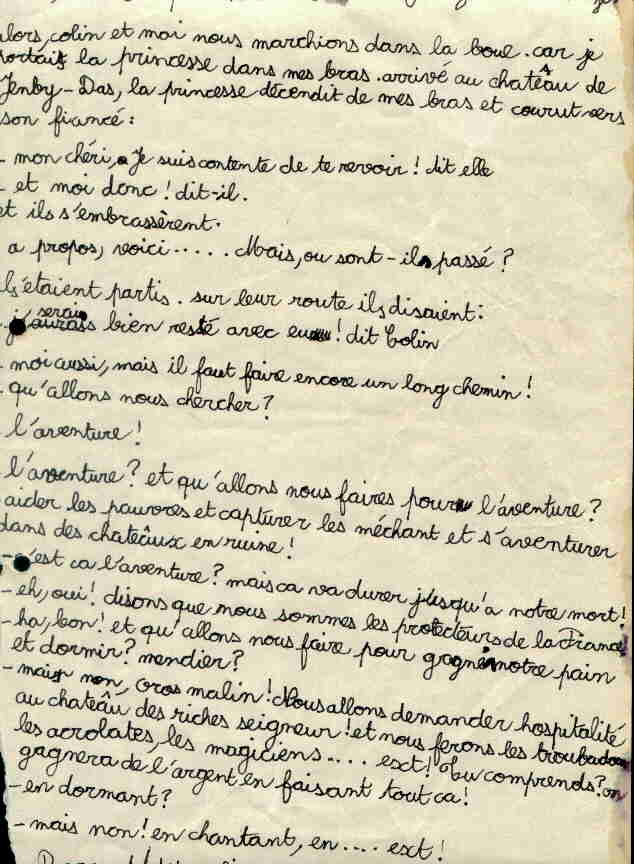 alors, colin et moi nous marchions dans la boue. car je
portais la princesse dans mes bras. arrivé au château de
Jenby-Das, la princesse décendit de mes bras et courut vers
son fiancé:
- mon chéri, Je suis contente de te revoir! dit elle
- et moi donc! dit-il.
et ils s'embrassèrent.
a propos, voici..... Mais, ou sont-ils passé?
Ils étaient partis. sur leur route ils disaient:
serais
j'aurais bien resté avec eux! dit Colin
- moi aussi, mais il faut faire encore un long chemin!
- qu'allons nous chercher?
l'aventure!
l'aventure? et qu'allons nous faires pour l'aventure?
aider les pauvres et capturer les méchant et s'aventurer
dans des chateâux en ruine!
- c'est ca l'aventure? mais ca va durer jusqu'a notre mort!
- eh, oui! disons que nous sommes les protecteurs de la France
- ha, bon! et qu'allons nous faire pour gagner notre pain
et dormir? mendier?
- mais non, gros malin! Nous allons demander hospitalité
au chateâu des riches seigneur! et nous ferons les troubadou
les acrobates, les magiciens.... ect! Tu comprends? on
gagnera de l'argent en faisant tout ca!
- en dormant?
- mais non! en chantant, en.... ect!